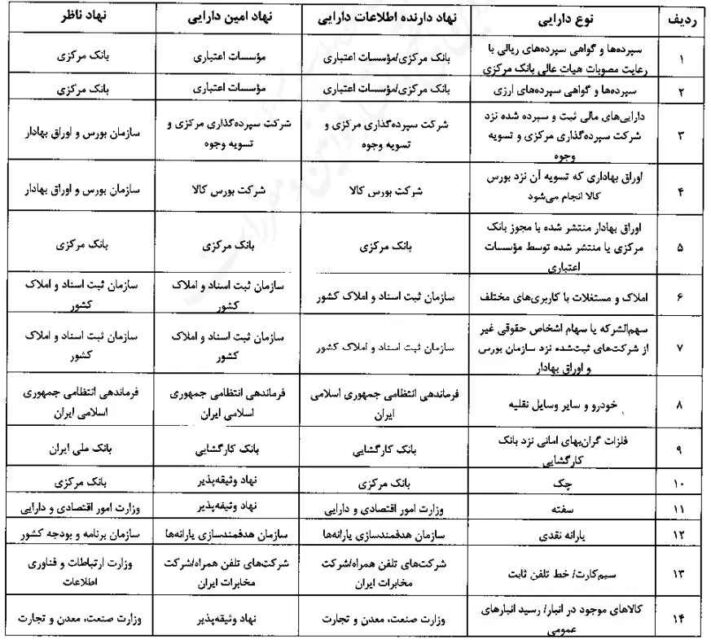 ردیف	نوع دارایی	نهاد دارنده اطلاعات دارایی	نهاد امین دارایی	نهاد ناظر
۱	سپرده‌ها و گواهی سپرده‌های ریالی با رعایت مصوبات هیات عالی بانک مرکزی	بانک مرکزی/مؤسسات اعتباری	مؤسسات اعتباری	بانک مرکزی
۲	سپرده‌ها و گواهی سپرده‌های ارزی	بانک مرکزی/مؤسسات اعتباری	مؤسسات اعتباری	بانک مرکزی
۳	دارایی‌های مالی ثبت و سپرده شده نزد شرکت سپرده‌گذاری مرکزی و تسویه وجوه	شرکت سپرده‌گذاری مرکزی و تسویه وجوه	شرکت سپرده‌گذاری مرکزی و تسویه وجوه	سازمان بورس و اوراق بهادار
۴	اوراق بهاداری که تسویه آن نزد بورس کالا انجام می‌شود	شرکت بورس کالا	شرکت بورس کالا	سازمان بورس و اوراق بهادار
۵	اوراق بهادار منتشر شده با مجوز بانک مرکزی یا منتشر شده توسط مؤسسات اعتباری	بانک مرکزی	بانک مرکزی	بانک مرکزی
۶	املاک و مستغلات با کاربری‌های مختلف	سازمان ثبت اسناد و املاک کشور	سازمان ثبت اسناد و املاک کشور	سازمان ثبت اسناد و املاک کشور
۷	سهم‌الشرکه یا سهام اشخاص حقوقی غیر از شرکت‌های ثبت‌شده نزد سازمان بورس و اوراق بهادار	سازمان ثبت اسناد و املاک کشور	سازمان ثبت اسناد و املاک کشور	سازمان ثبت اسناد و املاک کشور
۸	خودرو و سایر وسایل نقلیه	فرماندهی انتظامی جمهوری اسلامی ایران	فرماندهی انتظامی جمهوری اسلامی ایران	فرماندهی انتظامی جمهوری اسلامی ایران
۹	فلزات گران‌بهای امانی نزد بانک کارگشایی	بانک کارگشایی	بانک کارگشایی	بانک ملی ایران
۱۰	چک	بانک مرکزی	نهاد وثیقه‌پذیر	بانک مرکزی
۱۱	سفته	وزارت امور اقتصادی و دارایی	نهاد وثیقه‌پذیر	وزارت امور اقتصادی و دارایی
۱۲	یارانه نقدی	سازمان هدفمندسازی یارانه‌ها	سازمان هدفمندسازی یارانه‌ها	سازمان برنامه و بودجه کشور
۱۳	سیم‌کارت/ خط تلفن ثابت	شرکت‌های تلفن همراه/شرکت مخابرات ایران	شرکت‌های تلفن همراه/شرکت مخابرات ایران	وزارت ارتباطات و فناوری اطلاعات
۱۴	کالاهای موجود در انبار/ رسید انبارهای عمومی	وزارت صنعت، معدن و تجارت	نهاد وثیقه‌پذیر	وزارت صنعت، معدن و تجارت